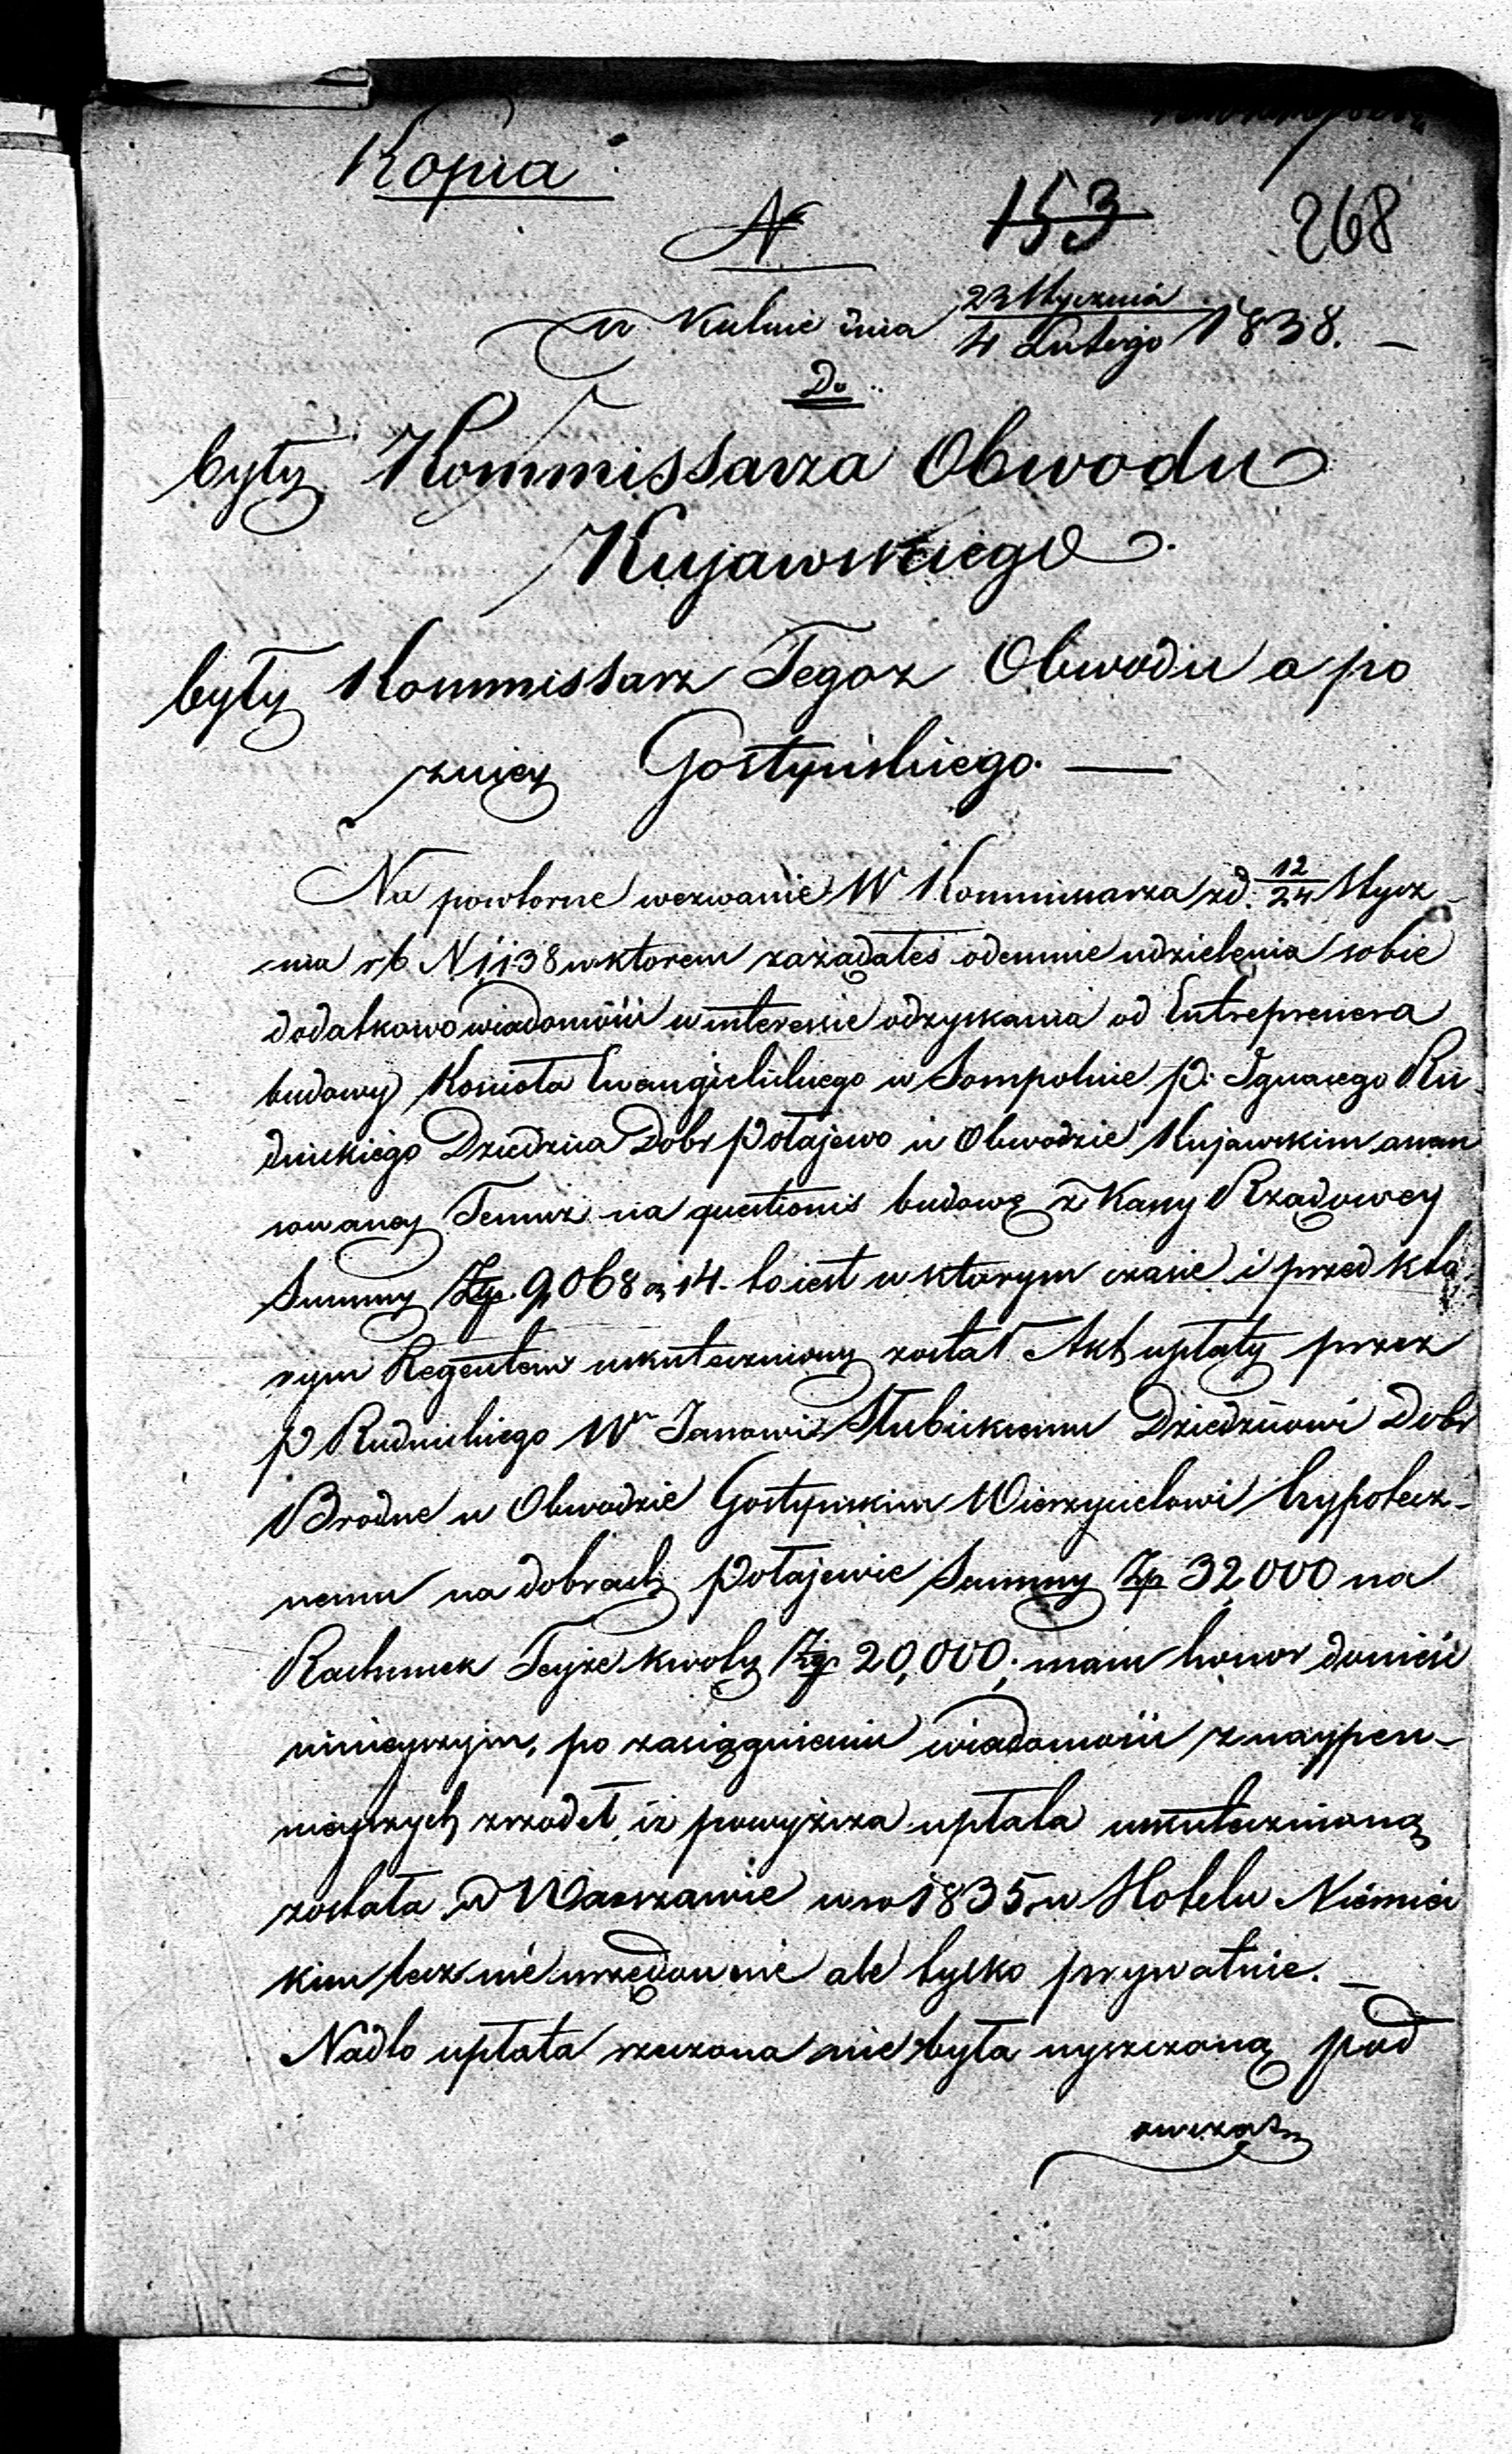 Kopia
N 153 268
w Kulnie dnia 23 Stycznia / 4 Lutego 1838. —
Do
były Kommissarza Obwodu
Kujawskiego
były Kommissarz Tegoz Obwodu a po
zniey Gostyńskiego. —
Na powtorne wezwanie W Kommissarza zd. 12/24 Stycz
nia rb N 1138 w ktorem zażądałeś odemnie udzielenia sobie
dodatkowo wiadomości w interessie odzyskania od Entreprenera
budowy Kościoła Ewangielickiego w Sompolnie P. Ignacego Ru
dnickiego Dziedzica Dobr Połajewo w Obwodzie Kujawskim awan
sowaney Temuż na questionis budowę z Kassy Rządowey
Summy Złp. 9,068 g 14. to iest w ktorym czasie i przed któ
rym Regentem uskuteczniony został Akt upłaty przez
P Rudnickiego Wu Janowi Słubickiemu Dziedzicowi Dobr
Brodne w Obwodzie Gostynskim Wierzycielowi hypotecz-
nemu na dobrach Połajewie Summy Złp 32,000 na
Rachunek Teyże kwoty Złp 20,000; mam honor donieść
ninieyszym, po zasiągnieniu wiadomości z naypew-
nieyszych zrzodeł, iż powyższa upłata uskutecznioną
została w Warszawie w ro 1835 w Hotelu Niemiec
kim lecz nie urzędownie ale tylko prywatnie. —
Nadto upłata rzeczona nie była uyszczoną pod
owczas